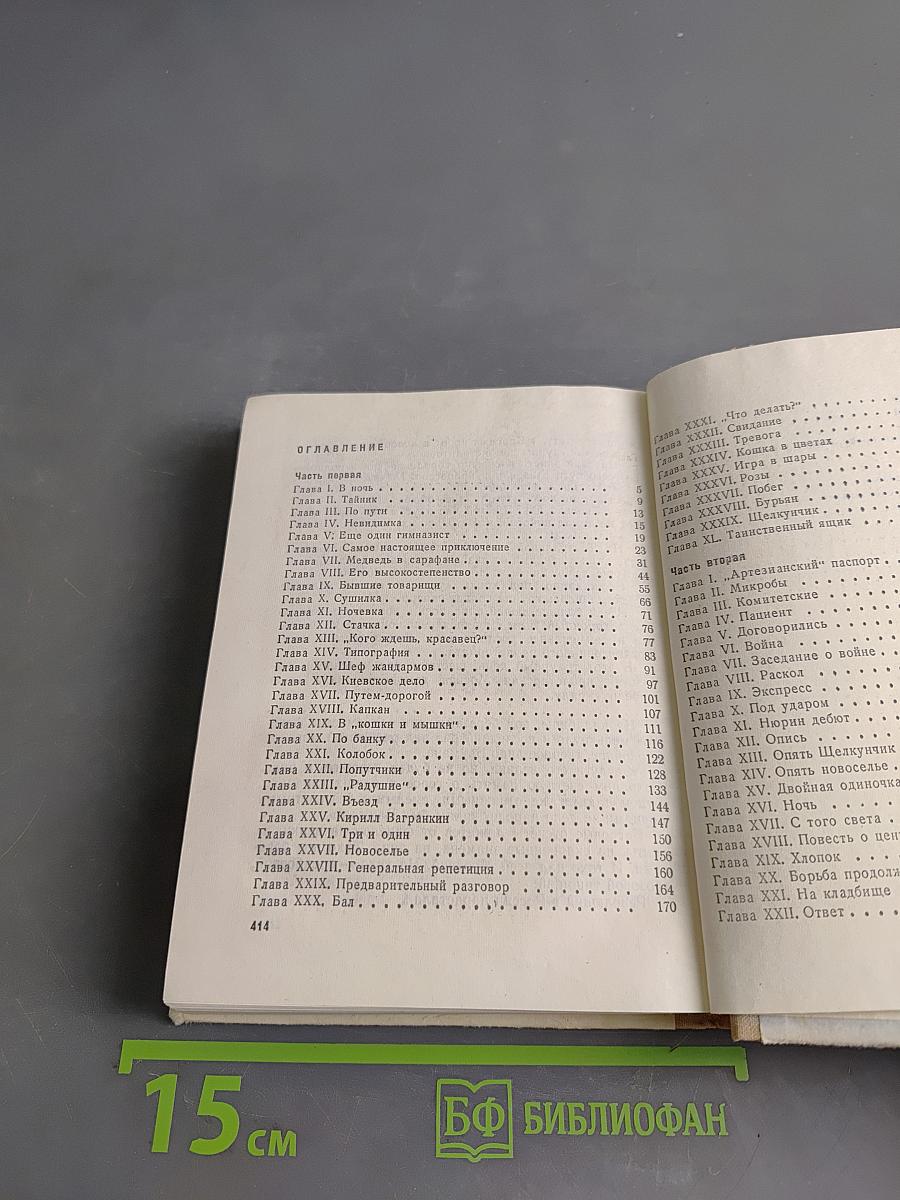 ОГЛАВЛЕНИЕ
Часть первая
Глава I. В ночь . . . 5
Глава II. Тайник . . . 9
Глава III. По пути . . . 13
Глава IV. Невидимка . . . 15
Глава V. Еще один гимназист . . . 19
Глава VI. Самое настоящее приключение . . . 23
Глава VII. Медведь в сарафане . . . 31
Глава VIII. Его высокостепенство . . . 44
Глава IX. Бывшие товарищи . . . 55
Глава X. Сушилка . . . 66
Глава XI. Ночевка . . . 71
Глава XII. Стачка . . . 76
Глава XIII. „Кого ждешь, красавец?“ . . . 77
Глава XIV. Типография . . . 83
Глава XV. Шеф жандармов . . . 91
Глава XVI. Киевское дело . . . 97
Глава XVII. Путем-дорогой . . . 101
Глава XVIII. Капкан . . . 107
Глава XIX. В „кошки и мышки“ . . . 111
Глава XX. По банку . . . 116
Глава XXI. Колобок . . . 122
Глава XXII. Попутчики . . . 128
Глава XXIII. „Радушие“ . . . 133
Глава XXIV. Въезд . . . 144
Глава XXV. Кирилл Вагранкин . . . 147
Глава XXVI. Три и один . . . 150
Глава XXVII. Новоселье . . . 156
Глава XXVIII. Генеральная репетиция . . . 160
Глава XXIX. Предварительный разговор . . . 164
Глава XXX. Бал . . . 170
414
Глава XXXI. „Что делать?“ . . .
Глава XXXII. Свидание . . .
Глава XXXIII. Тревога . . .
Глава XXXIV. Кошка в цветах . . .
Глава XXXV. Игра в шары . . .
Глава XXXVI. Розы . . .
Глава XXXVII. Побег . . .
Глава XXXVIII. Бурьян . . .
Глава XXXIX. Щелкунчик . . .
Глава XL. Таинственный ящик . . .
Часть вторая
Глава I. „Артезианский“ паспорт . . .
Глава II. Микробы . . .
Глава III. Комитетские . . .
Глава IV. Пациент . . .
Глава V. Договорились . . .
Глава VI. Война . . .
Глава VII. Заседание о войне . . .
Глава VIII. Раскол . . .
Глава IX. Экспресс . . .
Глава X. Под ударом . . .
Глава XI. Нюрин дебют . . .
Глава XII. Опись . . .
Глава XIII. Опять Щелкунчик
Глава XIV. Опять новоселье . . .
Глава XV. Двойная одиночка
Глава XVI. Ночь . . .
Глава XVII. С того света . . .
Глава XVIII. Повесть о цен
Глава XIX. Хлопок . . .
Глава XX. Борьба продолж
Глава XXI. На кладбище . . .
Глава XXII. Ответ . . .
15 см
БФ БИБЛИОФАН